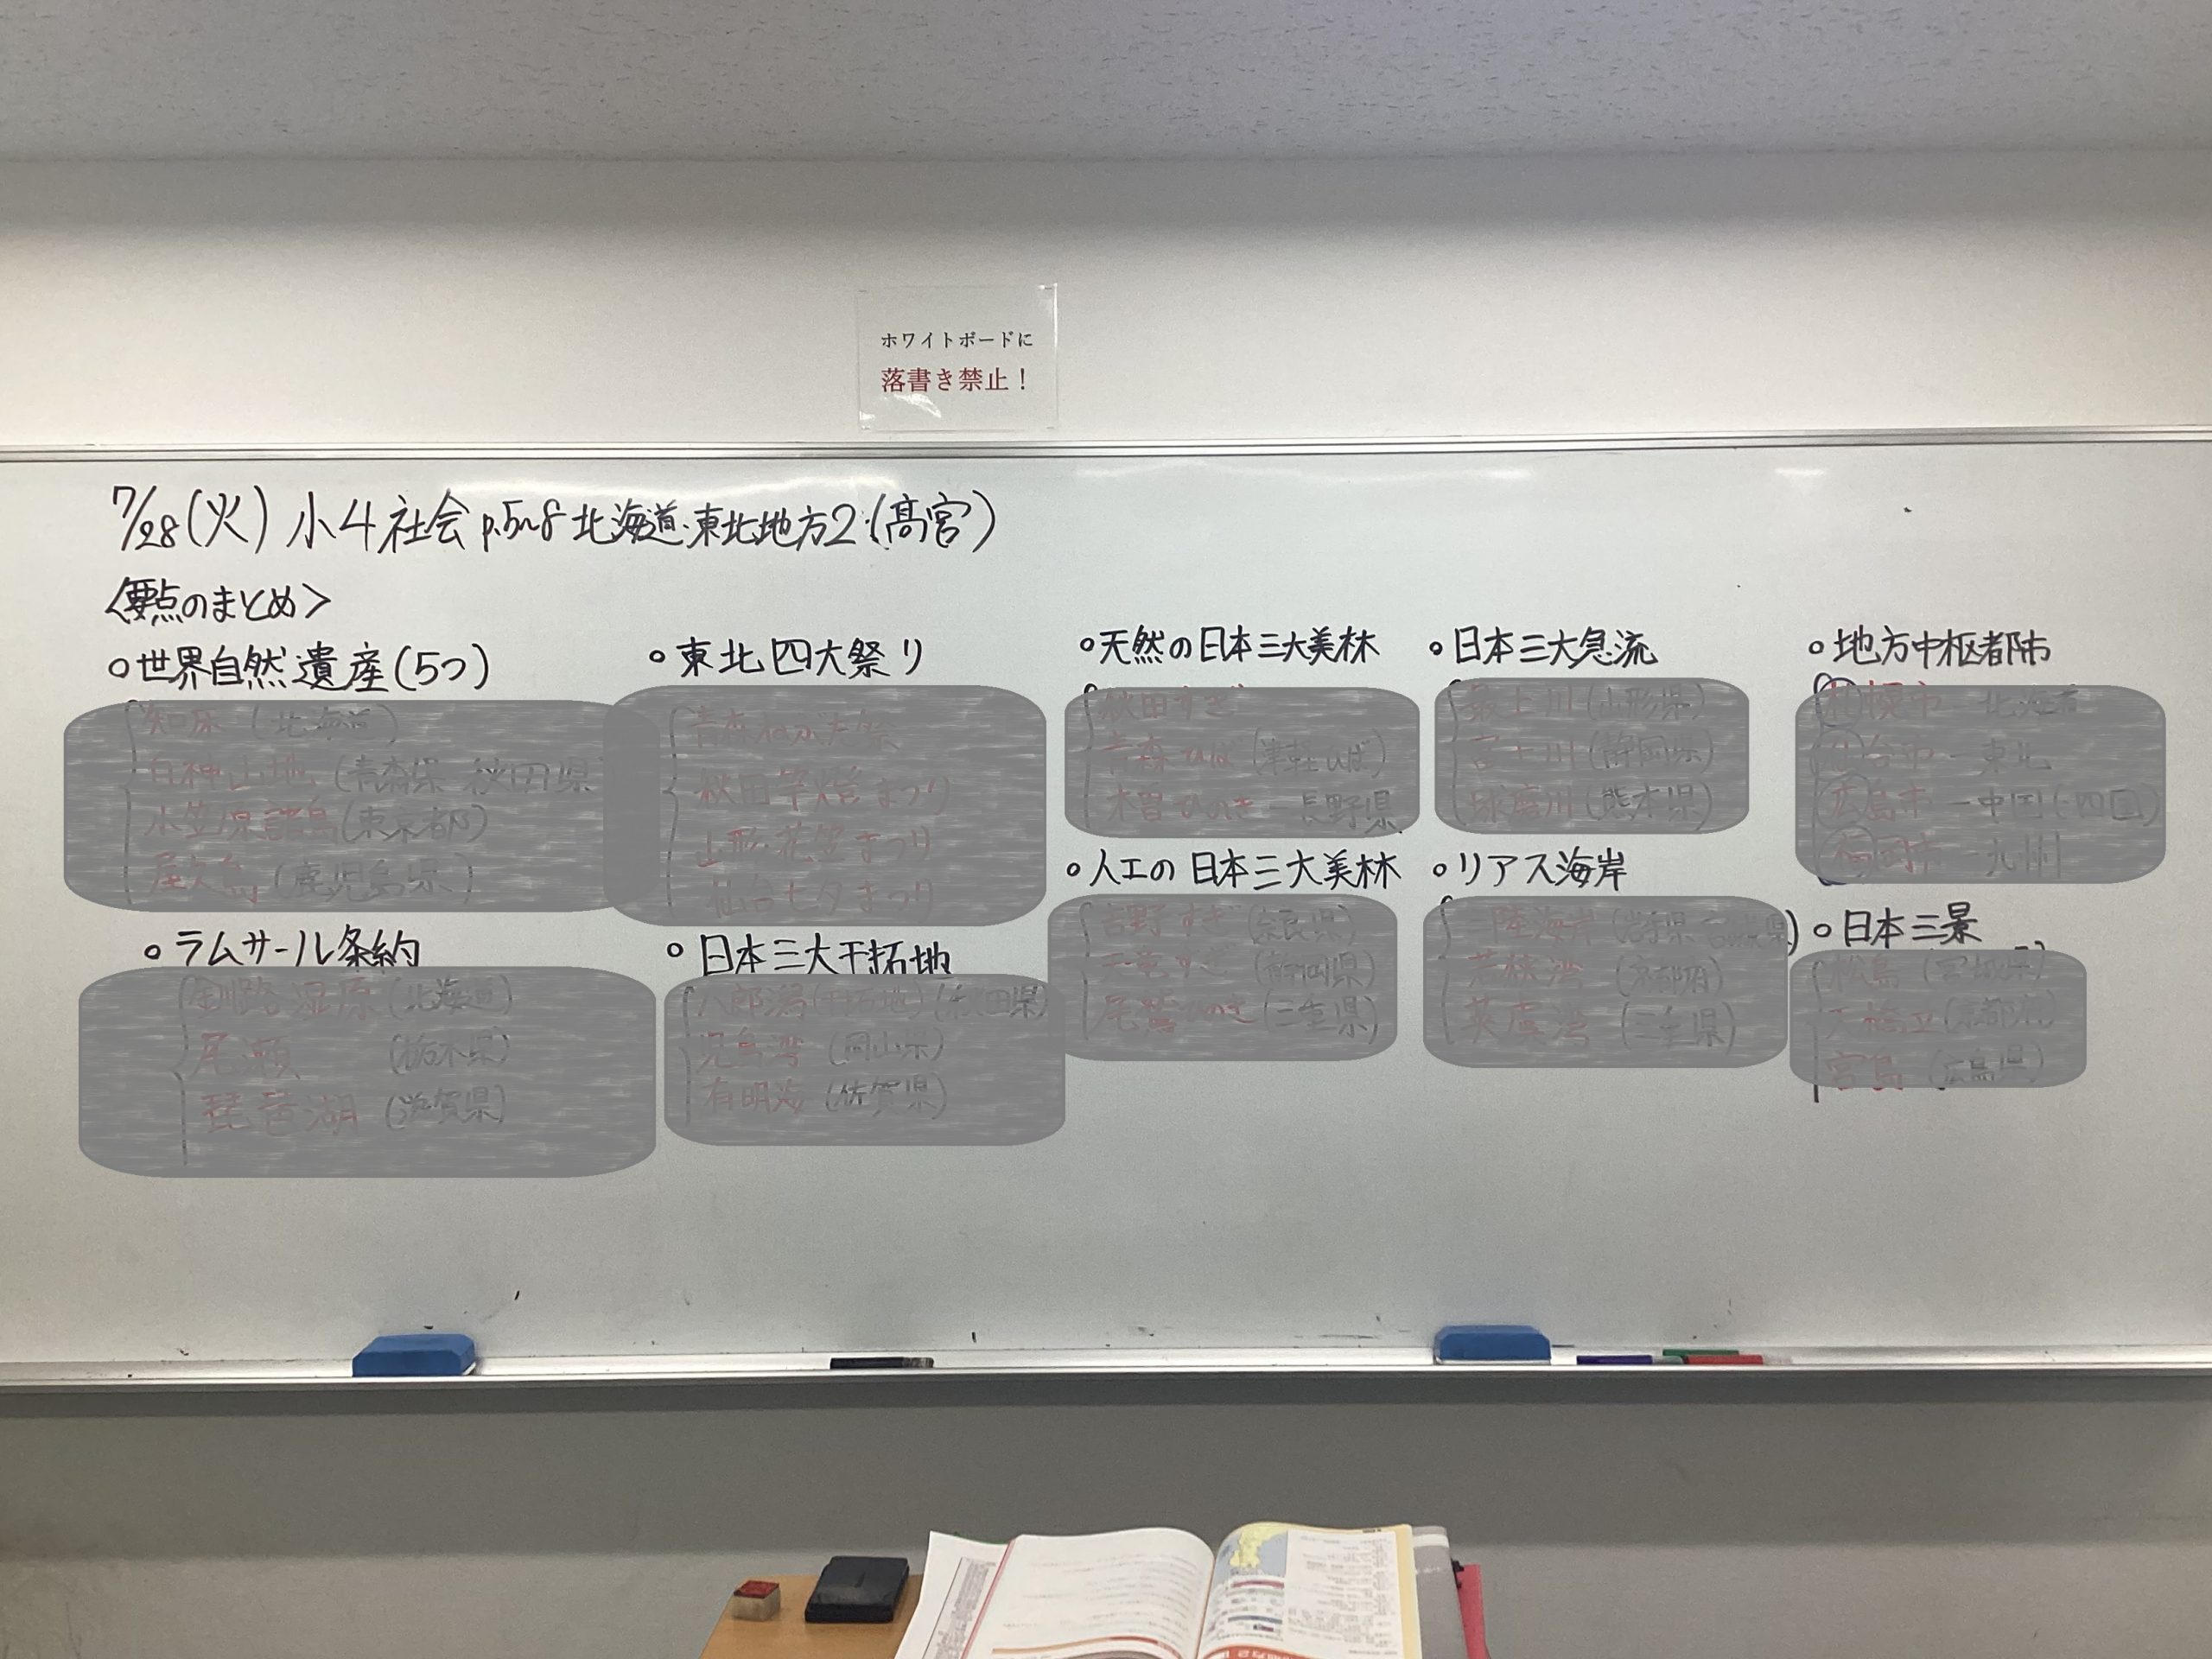 ホワイトボードに
落書き禁止！
7/28(火) 小4社会 p.5~8 北海道・東北地方2 (髙宮)
<要点のまとめ>
○世界自然遺産(5つ)
知床 (北海道)
白神山地 (青森県 秋田県
小笠原諸島(東京都)
屋久島 (鹿児島県)
○ラムサール条約
釧路湿原 (北海道)
尾瀬 (栃木県)
琵琶湖 (滋賀県)
○東北四大祭り
青森ねぶた祭
秋田竿燈まつり
山形花笠まつり
仙台七夕まつり
○日本三大干拓地
八郎潟(干拓地) (秋田県)
児島湾 (岡山県)
有明海 (佐賀県)
○天然の日本三大美林
秋田すぎ
青森ひば (津軽ひば)
木曽ひのき - 長野県
○人工の日本三大美林
吉野すぎ (奈良県)
天竜すぎ (静岡県)
尾鷲ひのき (三重県)
○日本三大急流
最上川 (山形県)
富士川 (静岡県)
球磨川 (熊本県)
○リアス海岸
三陸海岸 (岩手県 宮城県)
若狭湾 (京都府)
英虞湾 (三重県)
○地方中枢都市
札幌市 - 北海道
仙台市 - 東北
広島市 - 中国(・四国)
福岡市 - 九州
○日本三景
松島 (宮城県)
天橋立 (京都府)
宮島 (広島県)